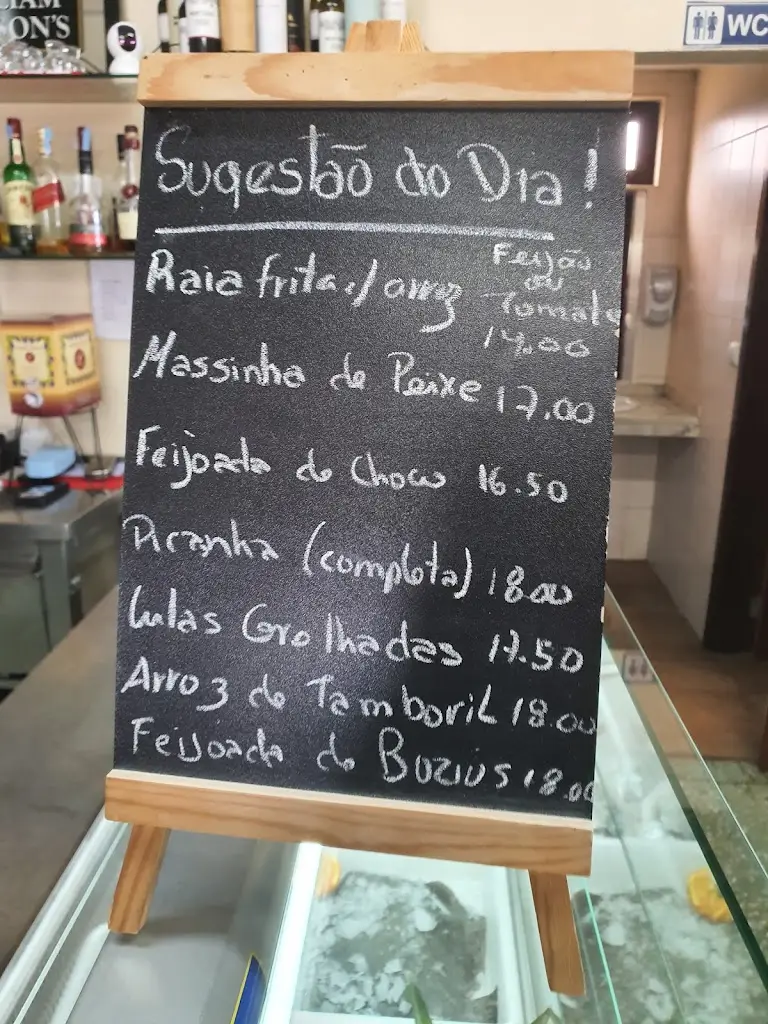 LIAM
ON'S
WC
Sugestão do Dia!
Raia frita c/ arroz Feijão
ou
Tomate
14,00
Massinha de Peixe 17.00
Feijoada de Choco 16.50
Picanha (completa) 18.00
Lulas Grelhadas 17.50
Arroz de Tamboril 18.00
Feijoada de Buzios 18.00